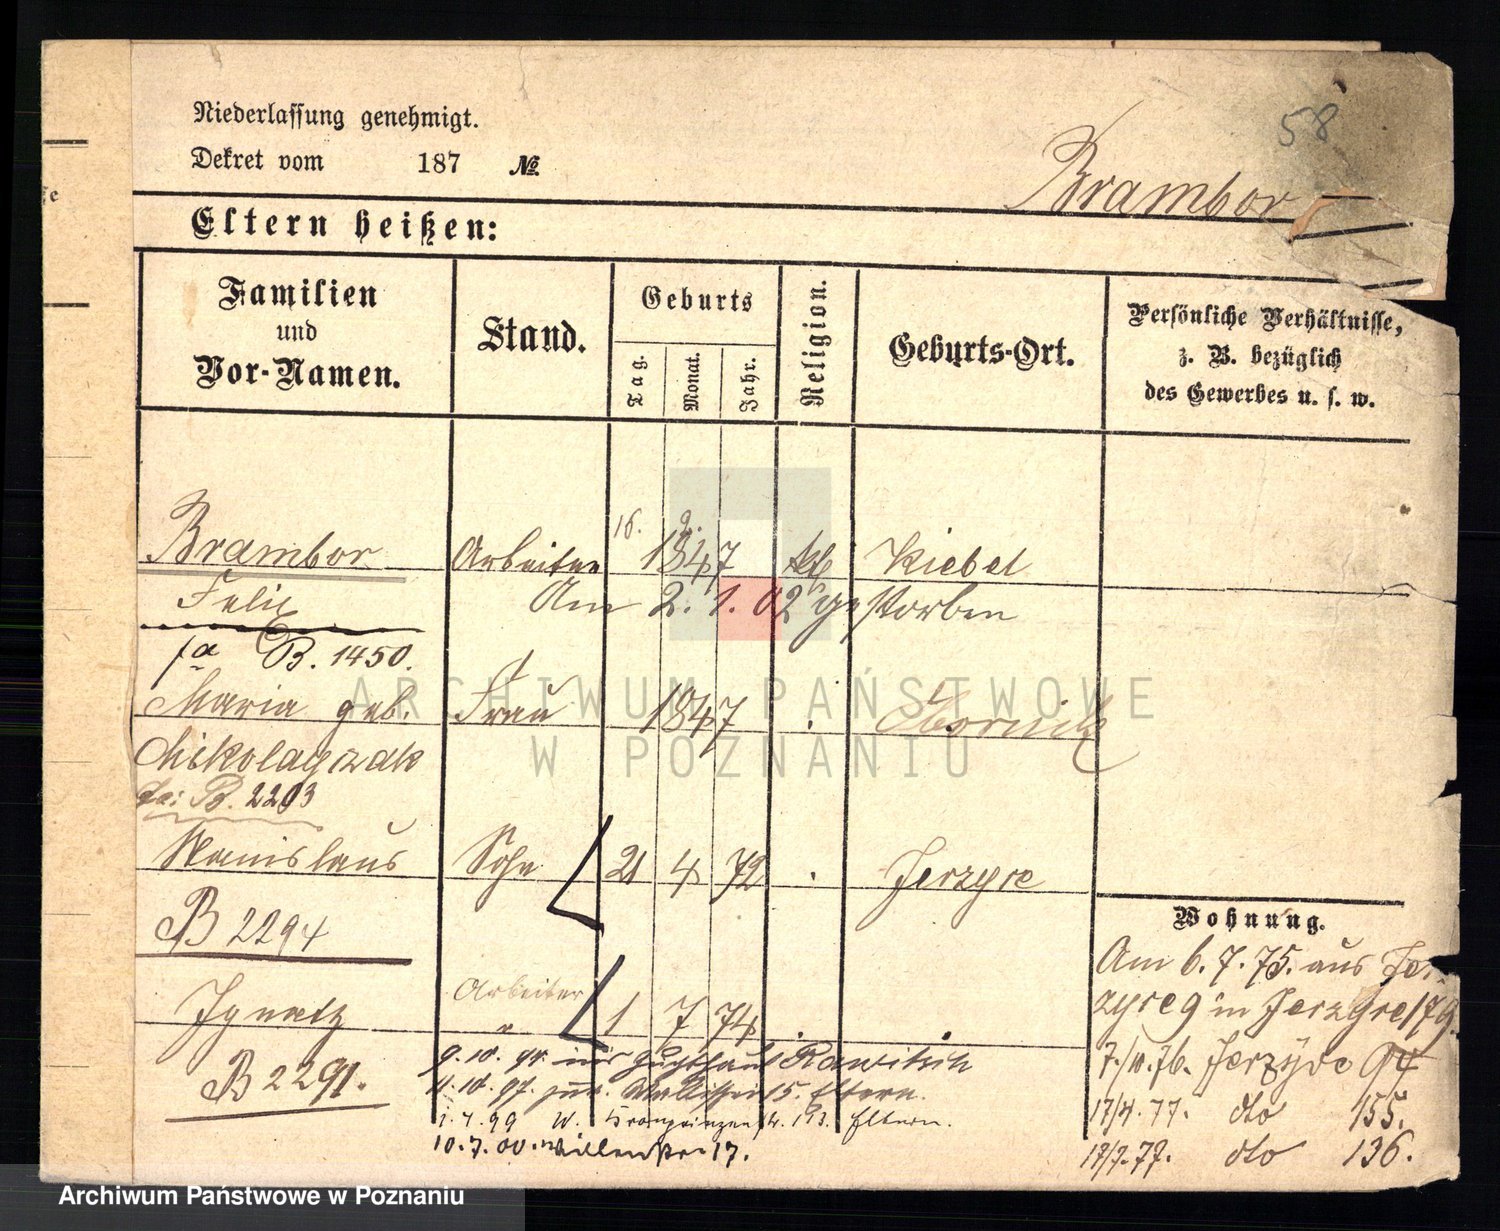 58
Niederlassung genehmigt.
Dekret vom 187 №.
Brambor
Eltern heißen:
Familien und Vor-Namen.
Stand.
Geburts
Tag.
Monat.
Jahr.
Religion.
Geburts-Ort.
Persönliche Verhältnisse,
z. B. bezüglich
des Gewerbes u. s. w.
Brambor Arbeiter 16. 9. 1847 kth Kiebel
Felix Am 2. 1. 02 gestorben
fa B. 1450.
Maria geb. Frau 1847 Obornik
Mikolayzak
fa: B. 2203
Stanislaus Sohn 21 4 72 Jerzyce
B 2294
Ignatz Arbeiter " 1 7 74
B 2291.
9. 10. 94. ins Zuchthaus Rawitsch
4. 10. 97. zur. Wallischei 5. Eltern.
1. 4. 99 W. Kronprinzenstr. 113. Eltern.
10. 7. 00. 17.
Wohnung.
Am 6. 7. 75. aus Jer-
zyce 9 in Jerzyce 179.
7./10. 76. Jerzyce 94
17/4. 77. dto 155.
17/7. 77. dto 136.
ARCHIWUM PAŃSTWOWE
W POZNANIU
Archiwum Państwowe w Poznaniu